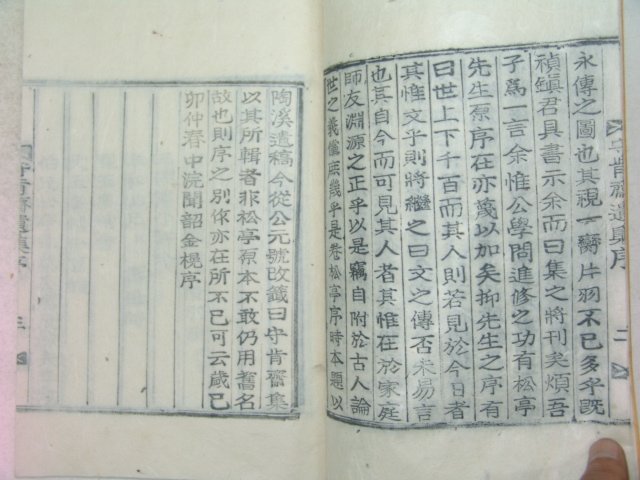 永傳之圖也其視一臠片羽不已多乎旣
禎鎭君具書示余而曰集之將刊矣煩吾
子爲一言余惟公學問進修之功有松亭
先生原序在亦蔑以加矣抑先生之序有
曰世上下千百而其人則若見於今日者
其惟文乎則將繼之曰文之傳否未易言
也其自今而可見其人者其惟在於家庭
師友淵源之正乎以是竊自附於古人論
世之義僅或幾乎是卷松亭序時本題以
陶溪遺稿今從公元號改籤曰守肯齋集
以其所輯者非松亭原本不敢仍用舊名
故也則序之別作亦在所不已可云歲己
卯仲春中浣聞韶金榥序
守肯齋遺集序
二
守肯齋遺集序
三